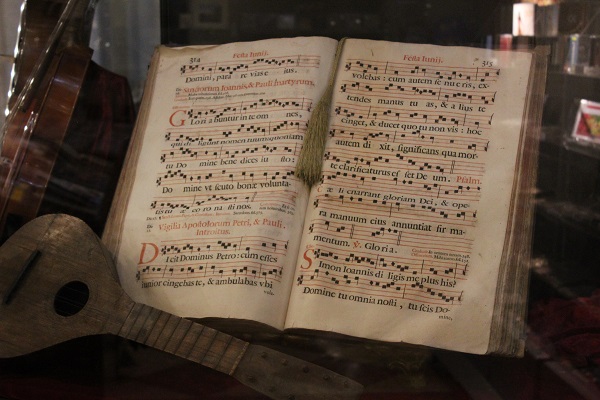 314
Festa Iunij.
Domini, para te vias e jus.
Sanctorum Ioannis, & Pauli Martyrum.
Gloria buntur in te om nes,
qui diligunt nomen tuum: quoniam
tu Do mine bene dices iu sto:
Do mine vt scuto bonæ volunta-
tis tu æ co ro na sti nos.
Vigilia Apostolorum Petri, & Pauli.
Introitus.
Dicit Dominus Petro: cum esses
iunior cingebas te, & ambulabas vbi
Festa Iunij.
315
volebas: cum autem se nue ris, ex-
tendes manus tu as, & a lius te
cinget, & ducet quo tu non vis: hoc
autem di xit, significans qua mor-
te clarificaturus es set De um. Psalm.
Cæ li enarrant gloriam Dei, & ope-
ra manuum eius annuntiat fir ma-
mentum. ℣. Gloria.
Simon Ioannis di ligis me plus his?
Domine tu omnia nosti, tu scis Do-